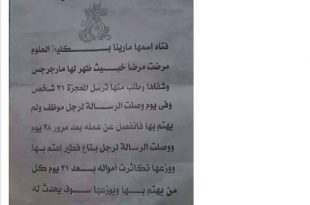 فتاه إسمها مارينا بكلية العلوم
مرضت مرضاً خبيث ظهر لها مارجرجس
وشفاها وطلب منها ترسل المعجزة ٣١ شخص
وفى يوم وصلت الرسالة لرجل موظف ولم
يهتم بها فانفصل عن عمله بعد مرور ٢٨ يوم
ووصلت الرسالة لرجل بتاع فطير إهتم بها
ووزعها تكاثرت أمواله بعد ٣١ يوم كل
من يهتم بها ويوزعها سوف يحدث له